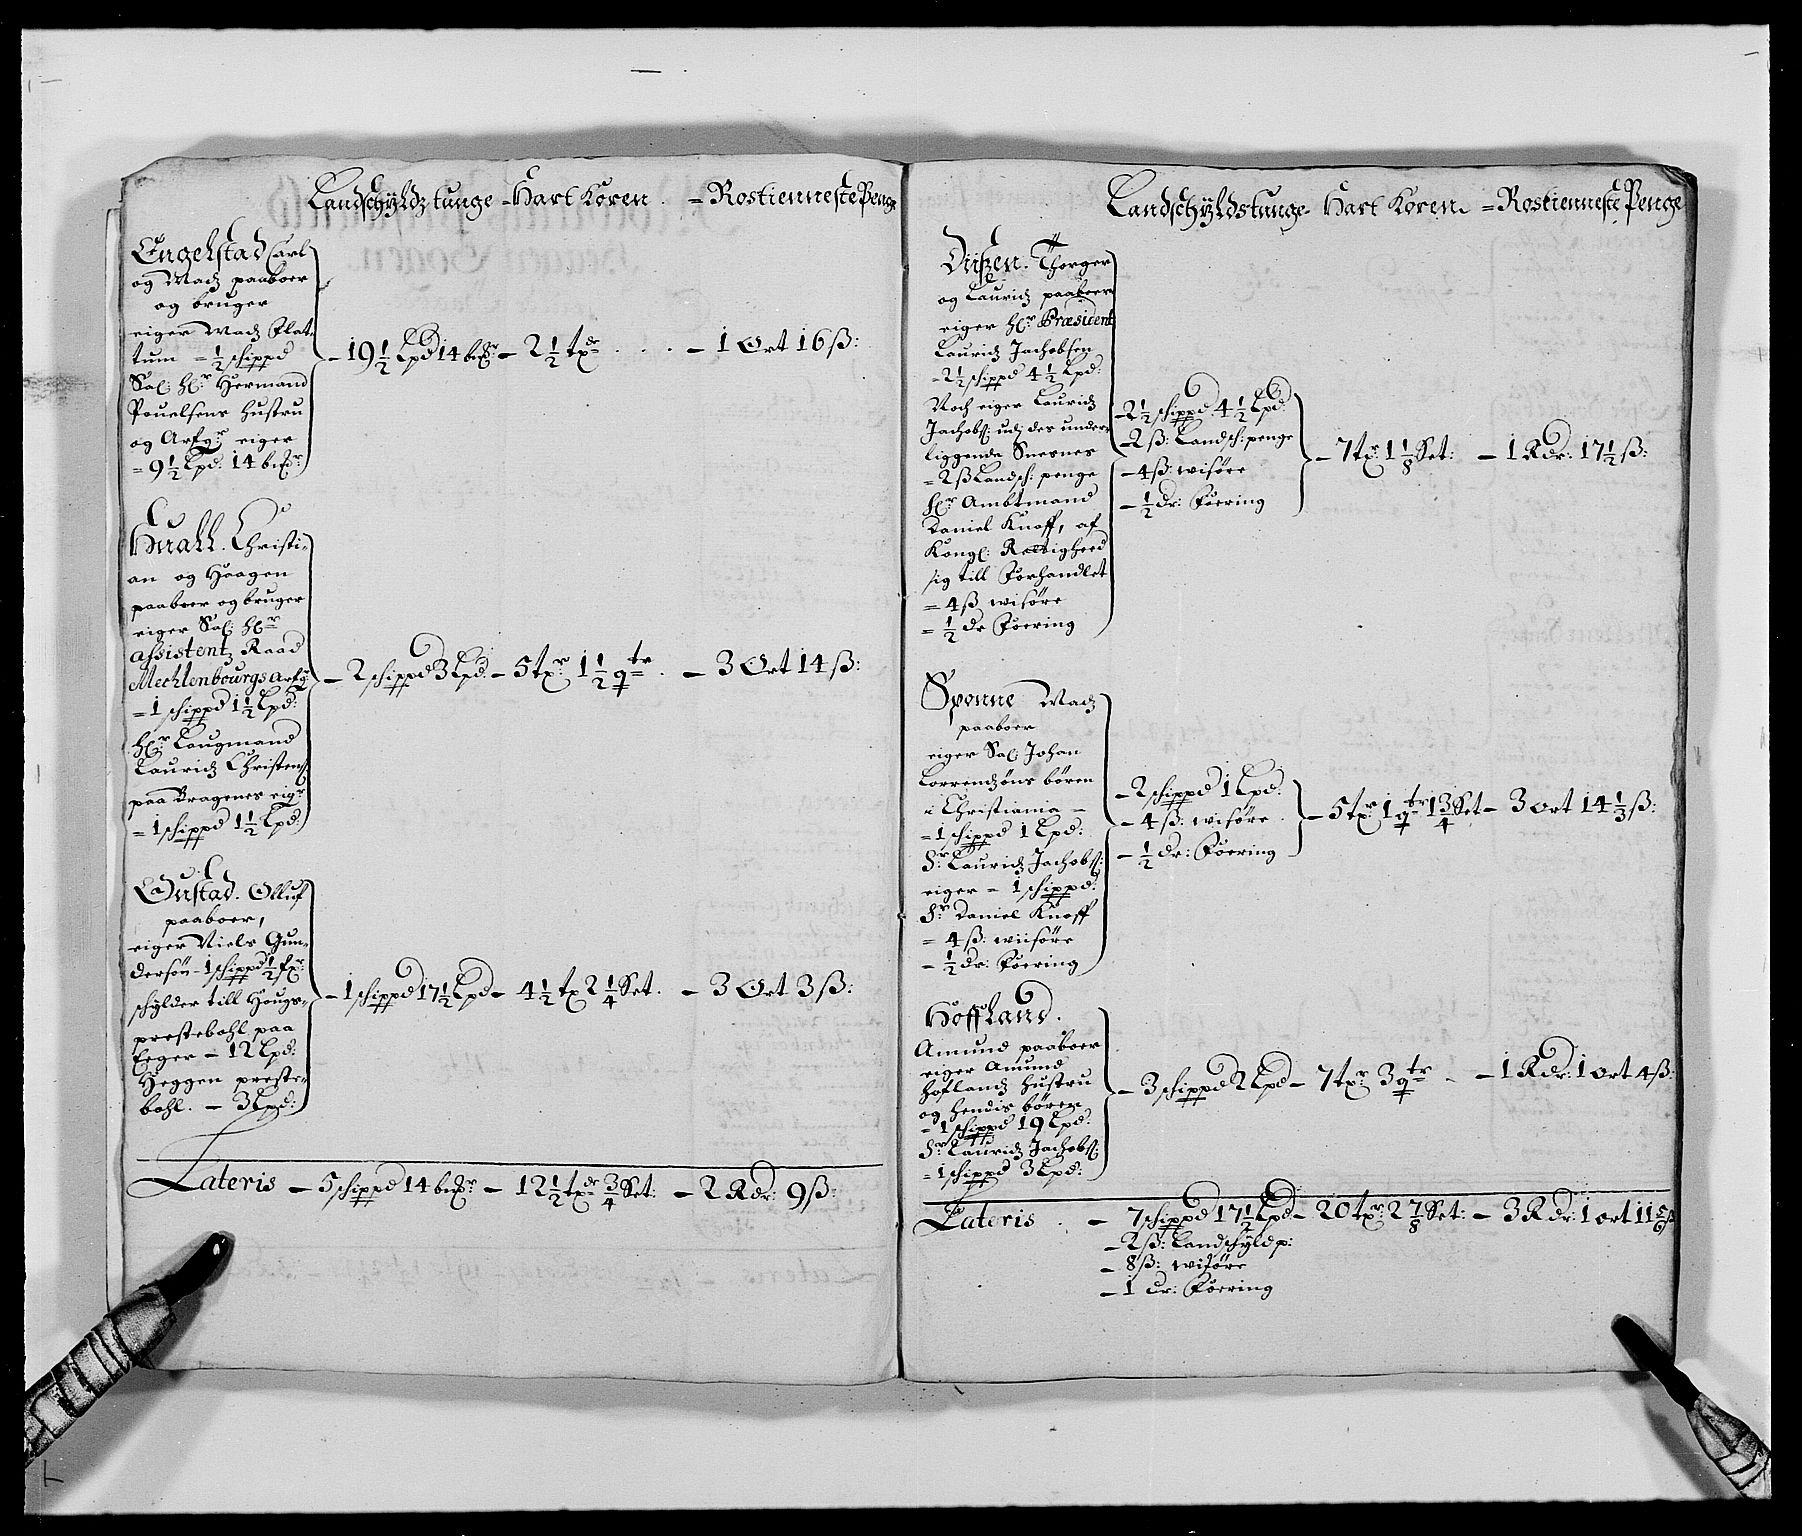 Landschÿldz tunge - Hart Koren - Rostienneste Penge
Engelstad Carl
og Madz paaboer
og bruger
eiger Madz Flat-
tum = 1/2 schippd
Sal: Hr: Hermand
Pouelsens Hustru
og Arfgr: eiger
= 9 1/2 Lpd: 14 bnſmr:
- 19 1/2 Lpd 14 bnſmr: - 2 1/2 tdr . . . - 1 Ort 16 ß:
Huall. Christi-
an og Haagen
paaboer og bruger
eiger Sal: Hr:
assistentz Raad
Mechlenbourgs arfgr:
= 1 schippd 1 1/2 Lpd:
Hr: Laugmand
Lauridz Christens:
paa Bragenes eigr
= 1 schippd 1 1/2 Lpd:
- 2 schippd 3 Lpd - 5 tr: 1 1/2 qtr . - 3 Ort 14 ß:
Oustad. Olluf
paaboer,
eiger Niels Gun-
dersøn - 1 schippd 1/2 fr:
schÿlder till Hougs-
prestebohl paa
Eeger - 12 Lpd:
Heggen preste-
bohl. - 3 Lpd:
- 1 schippd 17 1/2 Lpd - 4 1/2 t 2 1/4 Set. - 3 Ort 3 ß:
Lateris - 5 schippd 14 bnſmr - 12 1/2 tdr 3/4 Set: - 2 Rdr: 9 ß:
Landschÿldstunge - Hart Koren. = Rostienneste Penge
Thorger
og Lauridz paaboer
eiger Hr: Præsident
Lauridz Jachobsen
= 2 1/2 schippd 4 1/2 Lpd:
Noch eiger Lauridz
Jachobs: udj des under
liggende Snesnes
= 2 ß Landsch: penge
Hr: Ambtmand
Daniel Knoff, af
Kongl: Rettigheed
sig till Forhandlet
= 4 ß wisøre
= 1/2 dr Foering
- 2 1/2 schippd 4 1/2 Lpd:
- 2 ß: Landsch: penge
- 4 ß: wisøre
- 1/2 dr: Foering
- 7 tr: 1 1/8 Set: - 1 Rdr: 17 1/2 ß:
Sponne Madz
paaboer
eiger Sal: Johan
Lorrendzøns børen
i Christiania -
= 1 schippd 1 Lpd:
Hr: Lauridz Jachobs:
eiger = 1 schippd:
Hr: Daniel Knoff
= 4 ß: wiisøre
- 1/2 dr: Foering
- 2 schippd 1 Lpd:
- 4 ß: wisøre
- 1/2 dr: Foering
- 5 tr: 1 qtr 1 3/4 Set - 3 Ort 14 1/3 ß:
Hoffland.
Amund paaboer
eiger Amund
Hoflandz Hustru
og hendis børen
= 1 schippd 19 Lpd:
Hr: Lauridz Jachobs:
= 1 schippd 3 Lpd:
- 3 schippd 2 Lpd - 7 tr: 3 qtr - - 1 Rdr: 1 Ort 4 ß:
Lateris . - 7 schippd 17 1/2 Lpd - 20 tr: 2 7/8 Set: - 3 Rdr: 1 ort 11 5/6 ß
- 2 ß: Landschÿld p:
- 8 ß: wisøre
- 1 dr: Foering